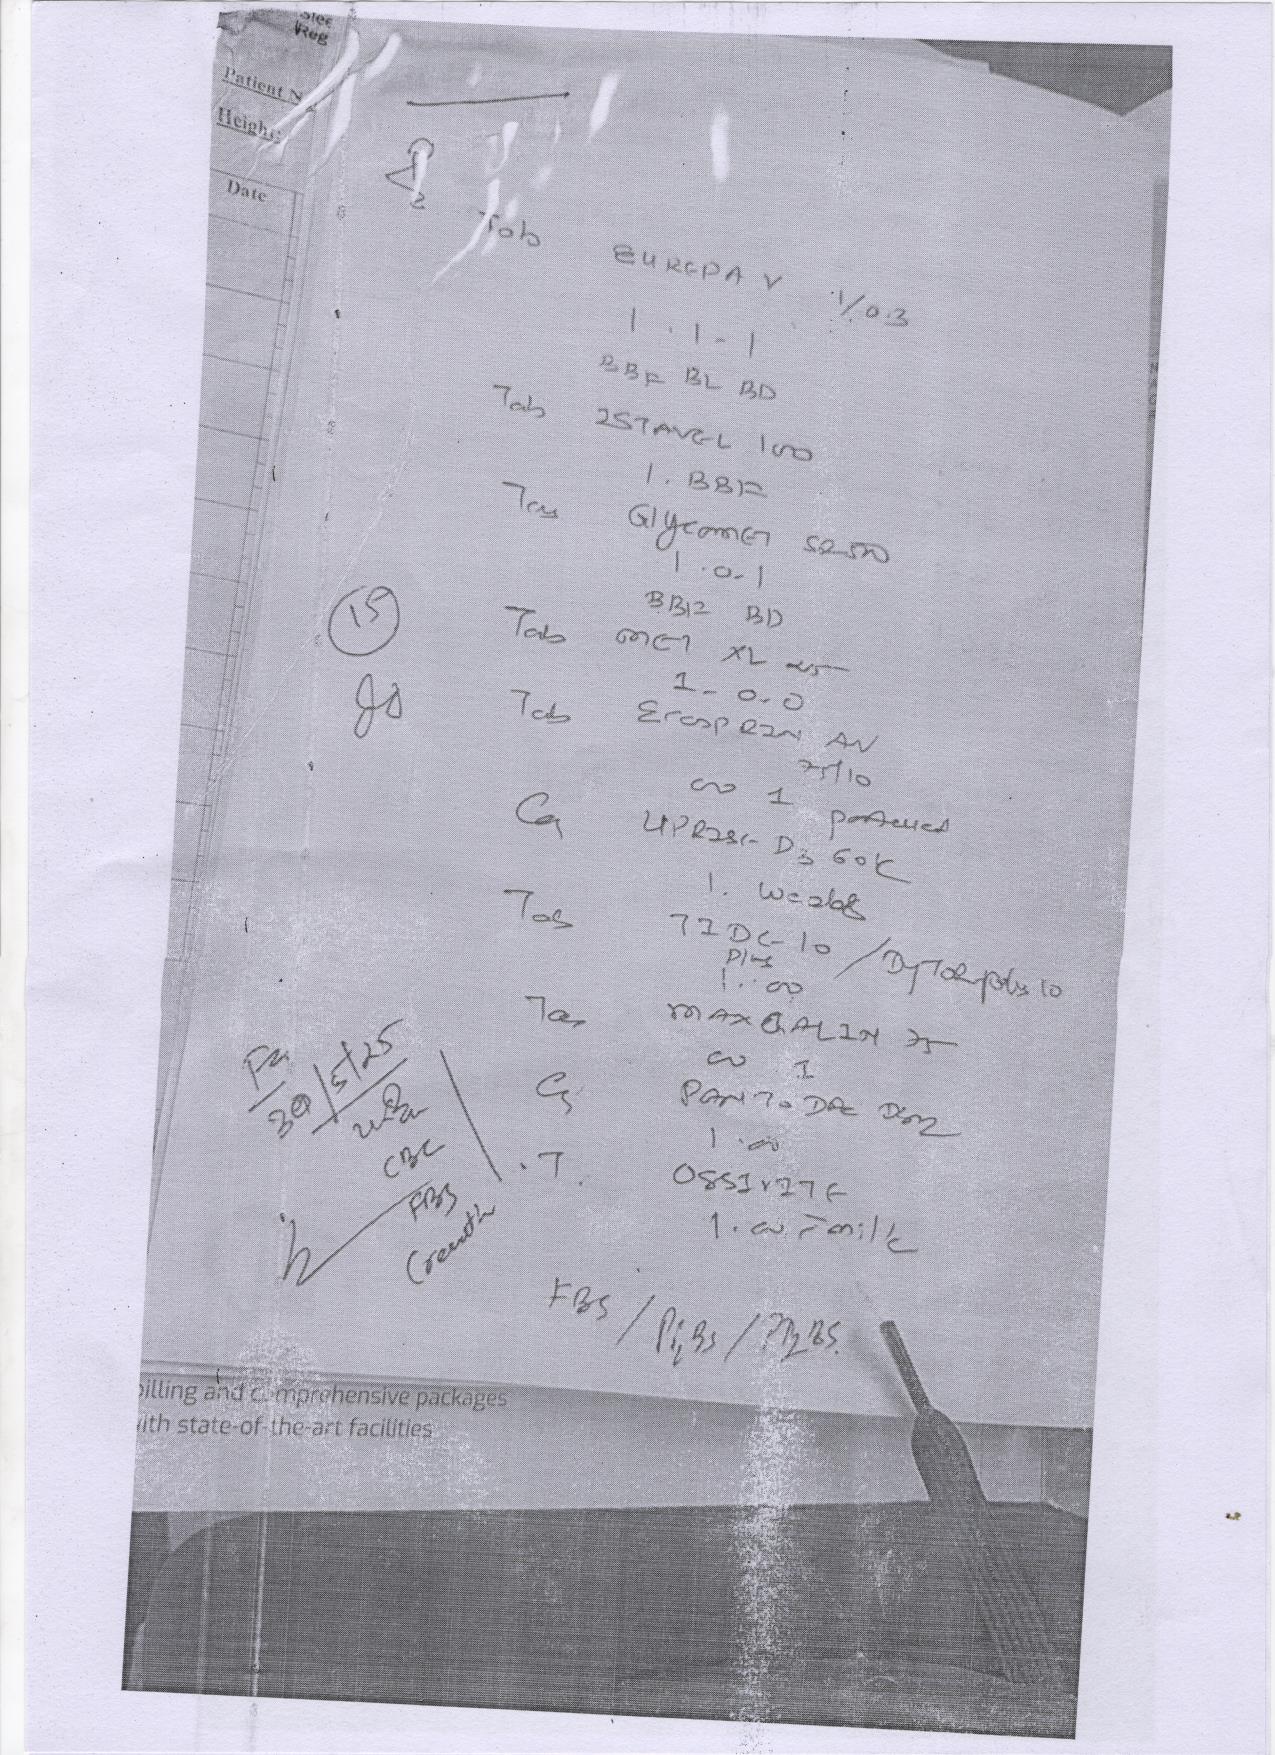 Reg
Patient N
Height:
Date
Tab EUREPA V 1/0.3
1 . 1 - 1
BBF BL BD
Tab ISTAVEL 100
1 . BBF
Tab Glycomet SR 500
1 . 0 . 1
BBF BD
15
Tab MET XL 25
1 - 0 . 0
Tab ECOSPRIN AV
75/10
00 1
Ca UPRISE D3 60K
1 . weekly
Tab TIDE 10 / Dytor plus 10
plus
1 . 00
Tab MAXGALIN 75
00 1
Ca PANTODAC DSR
1 . 00
. T. OSSIVITE
1 . 00 c milk
30/5/25
CBC
FBS
FBS / PLBS / PDBS
billing and comprehensive packages
with state-of-the-art facilities